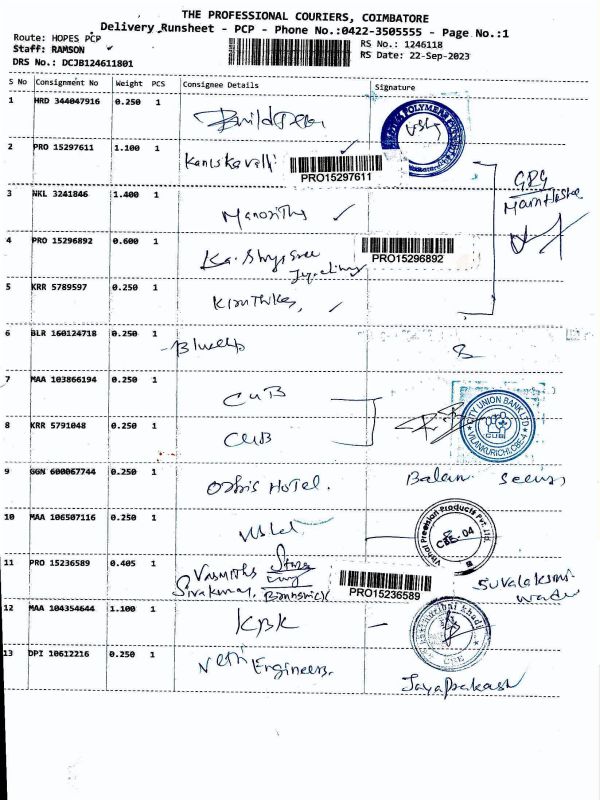 THE PROFESSIONAL COURIERS, COIMBATORE
Delivery Runsheet - PCP - Phone No.:0422-3505555 - Page No.:1
Route: HOPES PCP
RS No.: 1246118
Staff: RAMSON
RS Date: 22-Sep-2023
DRS No.: DCJB124611801
S No Consignment No Weight PCS Consignee Details Signature
1 HRD 344047916 0.250 1
2 PRO 15297611 1.100 1
PRO15297611
3 NKL 3241846 1.400 1 Manoritha
4 PRO 15296892 0.600 1
PRO15296892
5 KRR 5789597 0.250 1
6 BLR 160124718 0.250 1
7 MAA 103866194 0.250 1 CUB
8 KRR 5791048 0.250 1 CUB
CITY UNION BANK LTD
CUB
VILANKURICHI, CBE-4
9 GGN 600067744 0.250 1 Orbis Hotel. Balan
10 MAA 106507116 0.250 1
Vishal Precision Products Pvt. Ltd.
CBE-04
11 PRO 15236589 0.405 1
Sivakumar,
PRO15236589
12 MAA 104354644 1.100 1 KBK
CBE
13 DPI 10612216 0.250 1 Engineers.
Jayaprakash